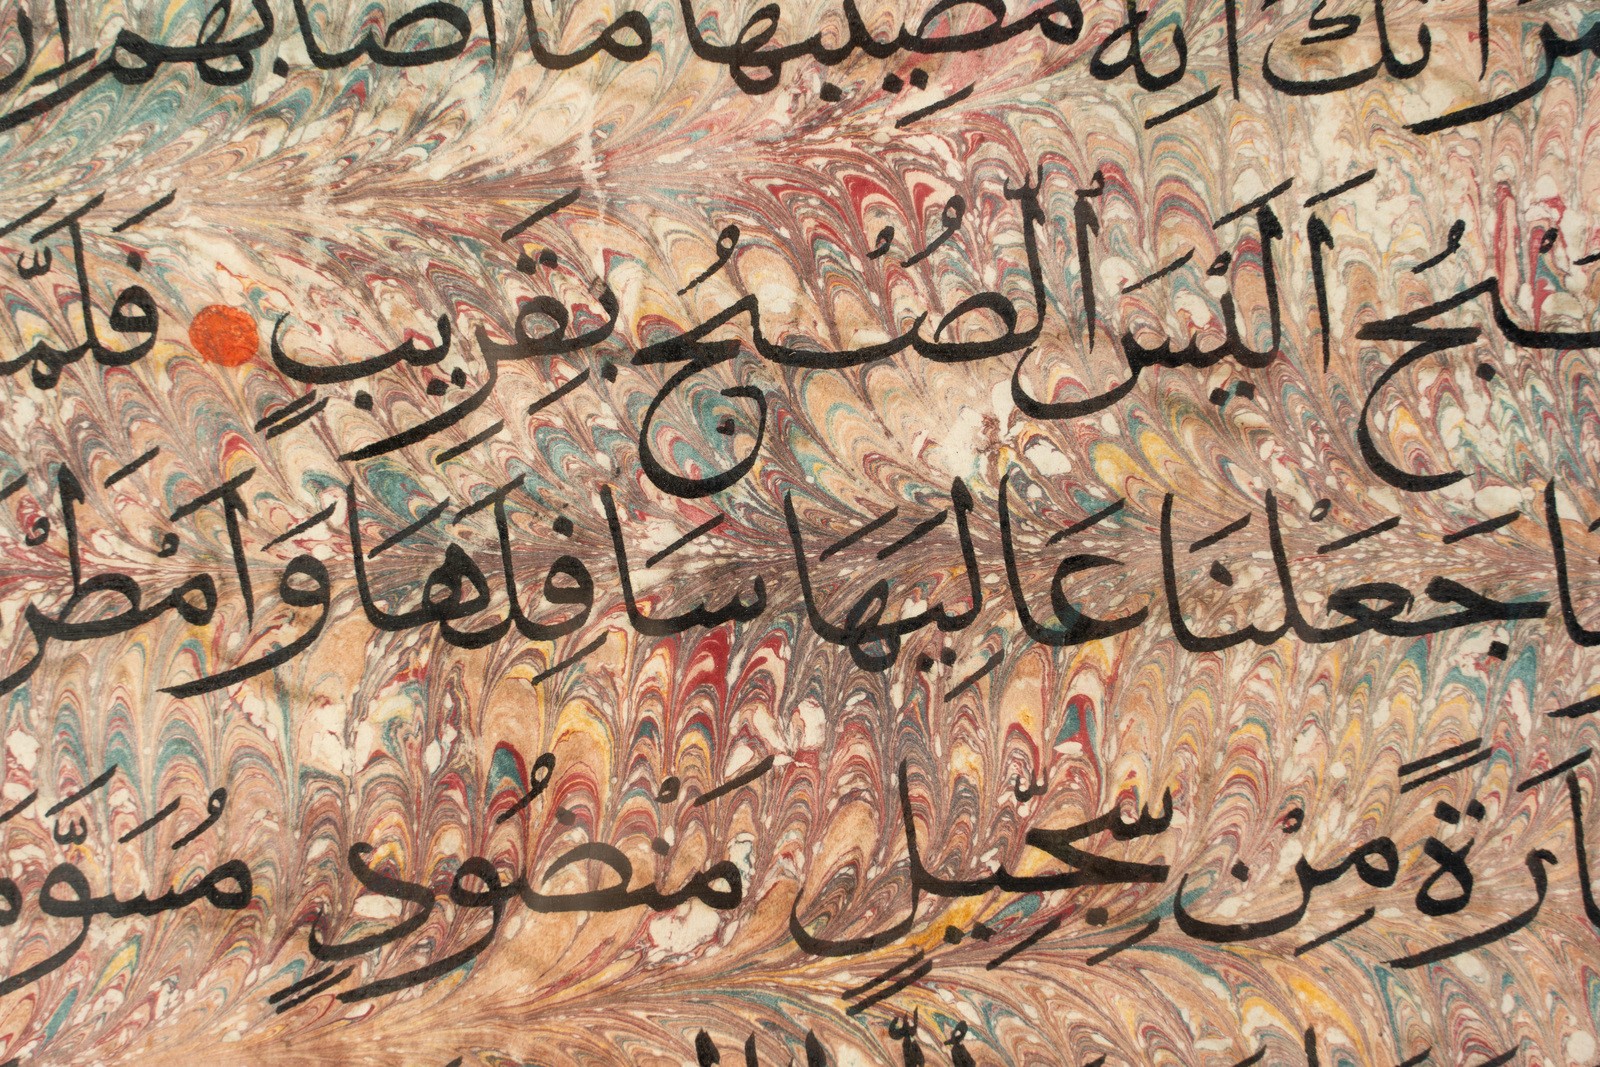 انك انه مصيبها ما اصابهم ان
ـصُّبْحُ اَلَيْسَ الصُّبْحُ بِقَرِيبٍ فَلَمَّا
جَعَلْنَا عَالِيَهَا سَافِلَهَا وَاَمْطَرْ
ـارَةً مِنْ سِجِّيلٍ مَنْضُودٍ مُسَوَّمَ